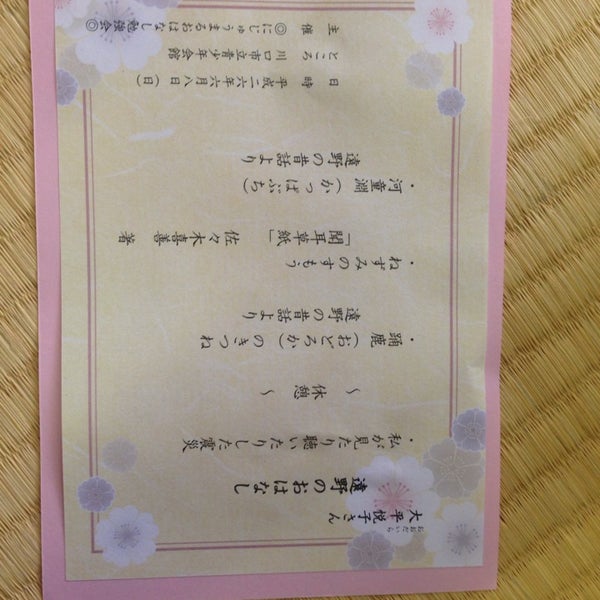 おおだいら
大平悦子さん
遠野のおはなし
・私が見たり聴いたりした震災
～ 休憩 ～
・踊鹿(おどろか)のきつね
遠野の昔話より
・ねずみのすもう
「聞耳草紙」佐々木喜善 著
・河童淵(かっぱぶち)
遠野の昔話より
日時 平成二六年六月八日(日)
ところ 川口市立青少年会館
主催 ◎にじゅうまるおはなし勉強会◎